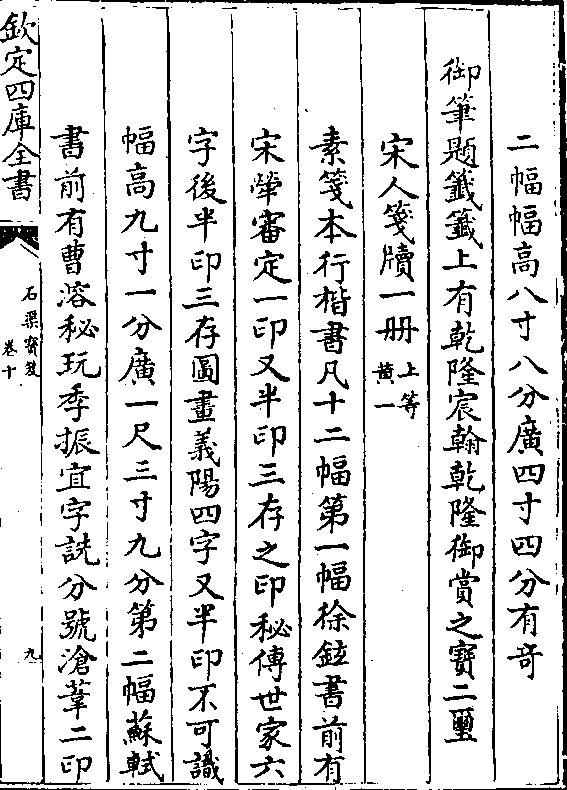 二幅幅高八寸八分廣四寸四分有奇
御筆題籤籤上有乾隆宸翰乾隆御賞之寶二璽
宋人箋牘一册上等
黃一
素箋本行楷書凡十二幅第一幅徐鉉書前有
宋犖審定一印又半印三存之印秘傳世家六
字後半印三存圖畫義陽四字又半印不可識
幅高九寸一分廣一尺三寸九分第二幅蘇軾
書前有曹溶秘玩季振宜字詵兮號滄葦二印
欽定四庫全書
石渠寶笈
卷十
九